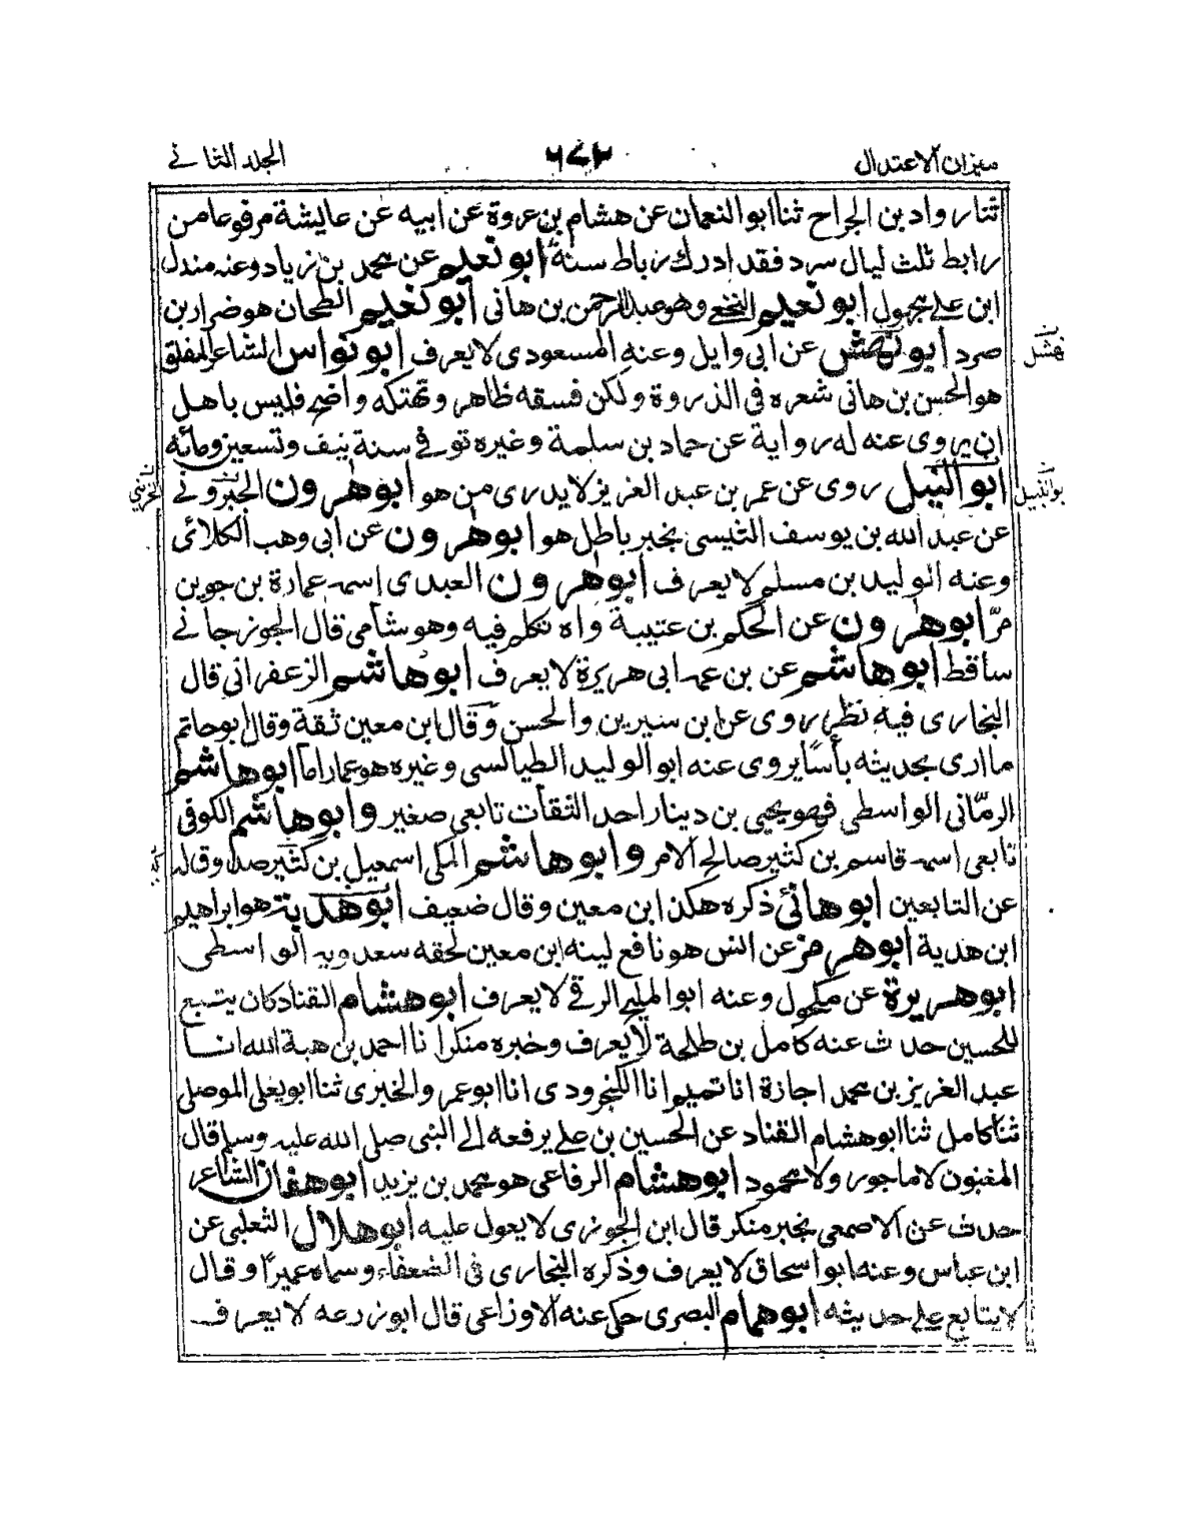 ميزان الاعتدال
٦٨٢
الجلد الثاني
ثنا رواد بن الجراح ثنا ابو النعمان عن هشام بن عروة عن ابيه عن عايشة مرفوعا من
رابط ثلث ليال سرد فقد ادرك رباط سنة ابو نعيم عن محمد بن زياد وعنه مندل
ابن علي مجهول ابو نعيم النخعي وهو عبد الرحمن بن هاني ابو نعيم الطحان هو ضرار بن
صرد ابو نهش عن ابي وايل وعنه المسعودي لا يعرف ابو نواس الشاعر المفلق
نهشل
هو الحسن بن هاني شعره في الذروة ولكن فسقه ظاهر وتهتكه واضح فليس باهل
ان يروى عنه له رواية عن حماد بن سلمة وغيره توفي سنة نيف وتسعين ومائه
ابو النبيل روى عن عمر بن عبد العزيز لا يدرى من هو ابو هرون الجبروني
عن عبد الله بن يوسف التنيسي بخبر باطل هو ابو هرون عن ابي وهب الكلائي
وعنه الوليد بن مسلم لا يعرف ابو هرون العبدي اسمه عمارة بن جوين
مرّ ابو هرون عن الحكم بن عتيبة واه تكلم فيه وهو شامي قال الجوزجاني
ساقط ابو هاشم عن بن عم ابي هريرة لا يعرف ابو هاشم الزعفراني قال
البخاري فيه نظر روى عن ابن سيرين والحسن وقال ابن معين ثقة وقال ابو حاتم
ما ارى بحديثه بأسًا يروى عنه ابو الوليد الطيالسي وغيره هو عمار اما ابو هاشم
الرمّاني الواسطي فهو يحيى بن دينار احد الثقات تابعي صغير وابو هاشم الكوفي
تابعي اسمه قاسم بن كثير صالح الامر وابو هاشم المكي اسمعيل بن كثير صدوق له
عن التابعين ابو هانئ ذكره هكذا ابن معين وقال ضعيف ابو هدبة هو ابراهيم
ابن هدية ابو هرمز عن انس هو نافع لينه ابن معين لحقه سعدويه الواسطي
ابو هريرة عن مكحول وعنه ابو المليح الرقي لا يعرف ابو هشام القناد كان يتبع
للحسين حدث عنه كامل بن طلحة لا يعرف وخبره منكر انا احمد بن هبة الله انا
عبد العزيز بن محمد اجازة انا تميم انا الكنجرودي انا ابو عمرو الخبري ثنا ابو يعلى الموصلي
ثنا كامل ثنا ابو هشام القناد عن الحسين بن علي يرفعه الى النبي صلى الله عليه وسلم قال
المغبون لا ماجور ولا محمود ابو هشام الرفاعي هو محمد بن يزيد ابو هفان الشاعر
حدث عن الاصمعي بخبر منكر قال ابن الجوزي لا يعول عليه ابو هلال الثعلبي عن
ابن عباس وعنه ابو اسحاق لا يعرف وذكره البخاري في الضعفاء وسماه عميرًا وقال
لا يتابع على حديثه ابو همام البصري حكى عنه الاوزاعي قال ابو زرعه لا يعرف